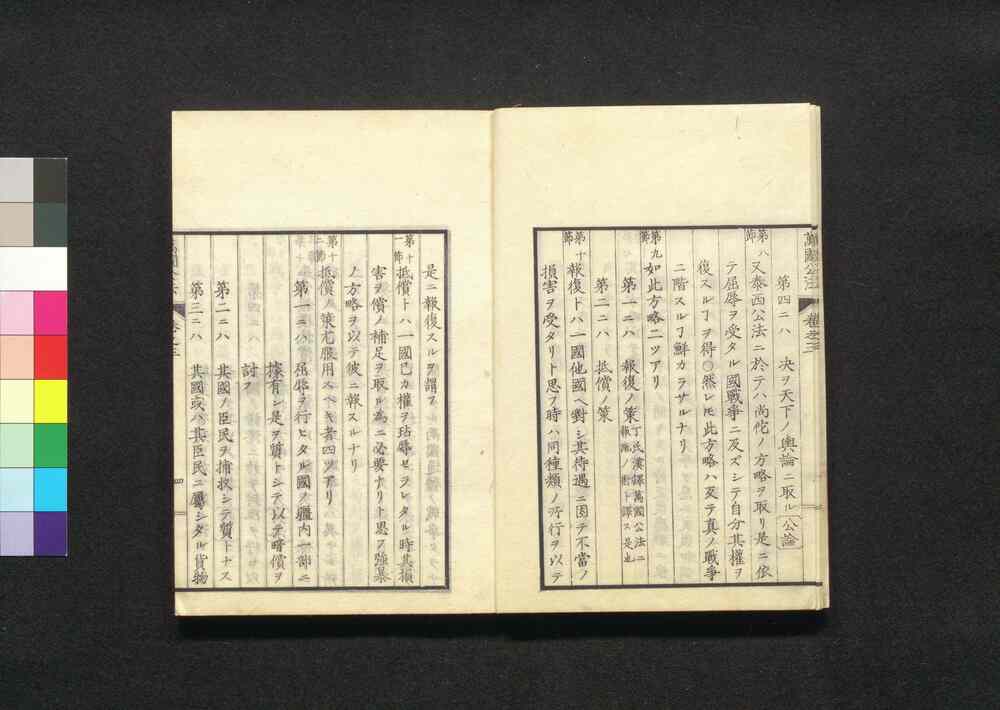 萬國公法 卷之三
第四ニハ 决ヲ天下ノ輿論ニ取ル 公論
第八節 又泰西公法ニ於テハ尚佗ノ方略ヲ取リ是ニ依
テ屈辱ヲ受タル國戰爭ニ及ズシテ自分其權ヲ
復スルヿヲ得○然レ𪜈此方略ハ変テ真ノ戰爭
ニ階スルヿ鮮カラサルナリ
第九節 如此方略二ツアリ
第一ニハ 報復ノ策 丁氏漢譯萬國公法ニ
報施ノ術ト譯ス是也
第二ニハ 抵償ノ策
第十節 報復トハ一國他國ヘ對シ其待遇ニ因テ不當ノ
損害ヲ受タリト思フ時ハ同種類ノ所行ヲ以テ
是ニ報復スルヲ謂フ
第十一節 抵償トハ一國已カ權ヲ玷辱セラレタル時其損
害ヲ償ノ補足ヲ取ル為ニ必要ナリト思フ強暴
ノ方略ヲ以テ彼ニ報スルナリ
第十二節 抵償ノ策尤服用スヘキ者四ツアリ
第一ニハ 屈辱ヲ行ヒタル國ノ疆内一部ニ
據有シ是ヲ質トシテ以テ賠償ヲ
討フ
第二ニハ 其國ノ臣民ヲ捕拟シテ質トナス
第三ニハ 其國或ハ其臣民ニ屬シタル貨物